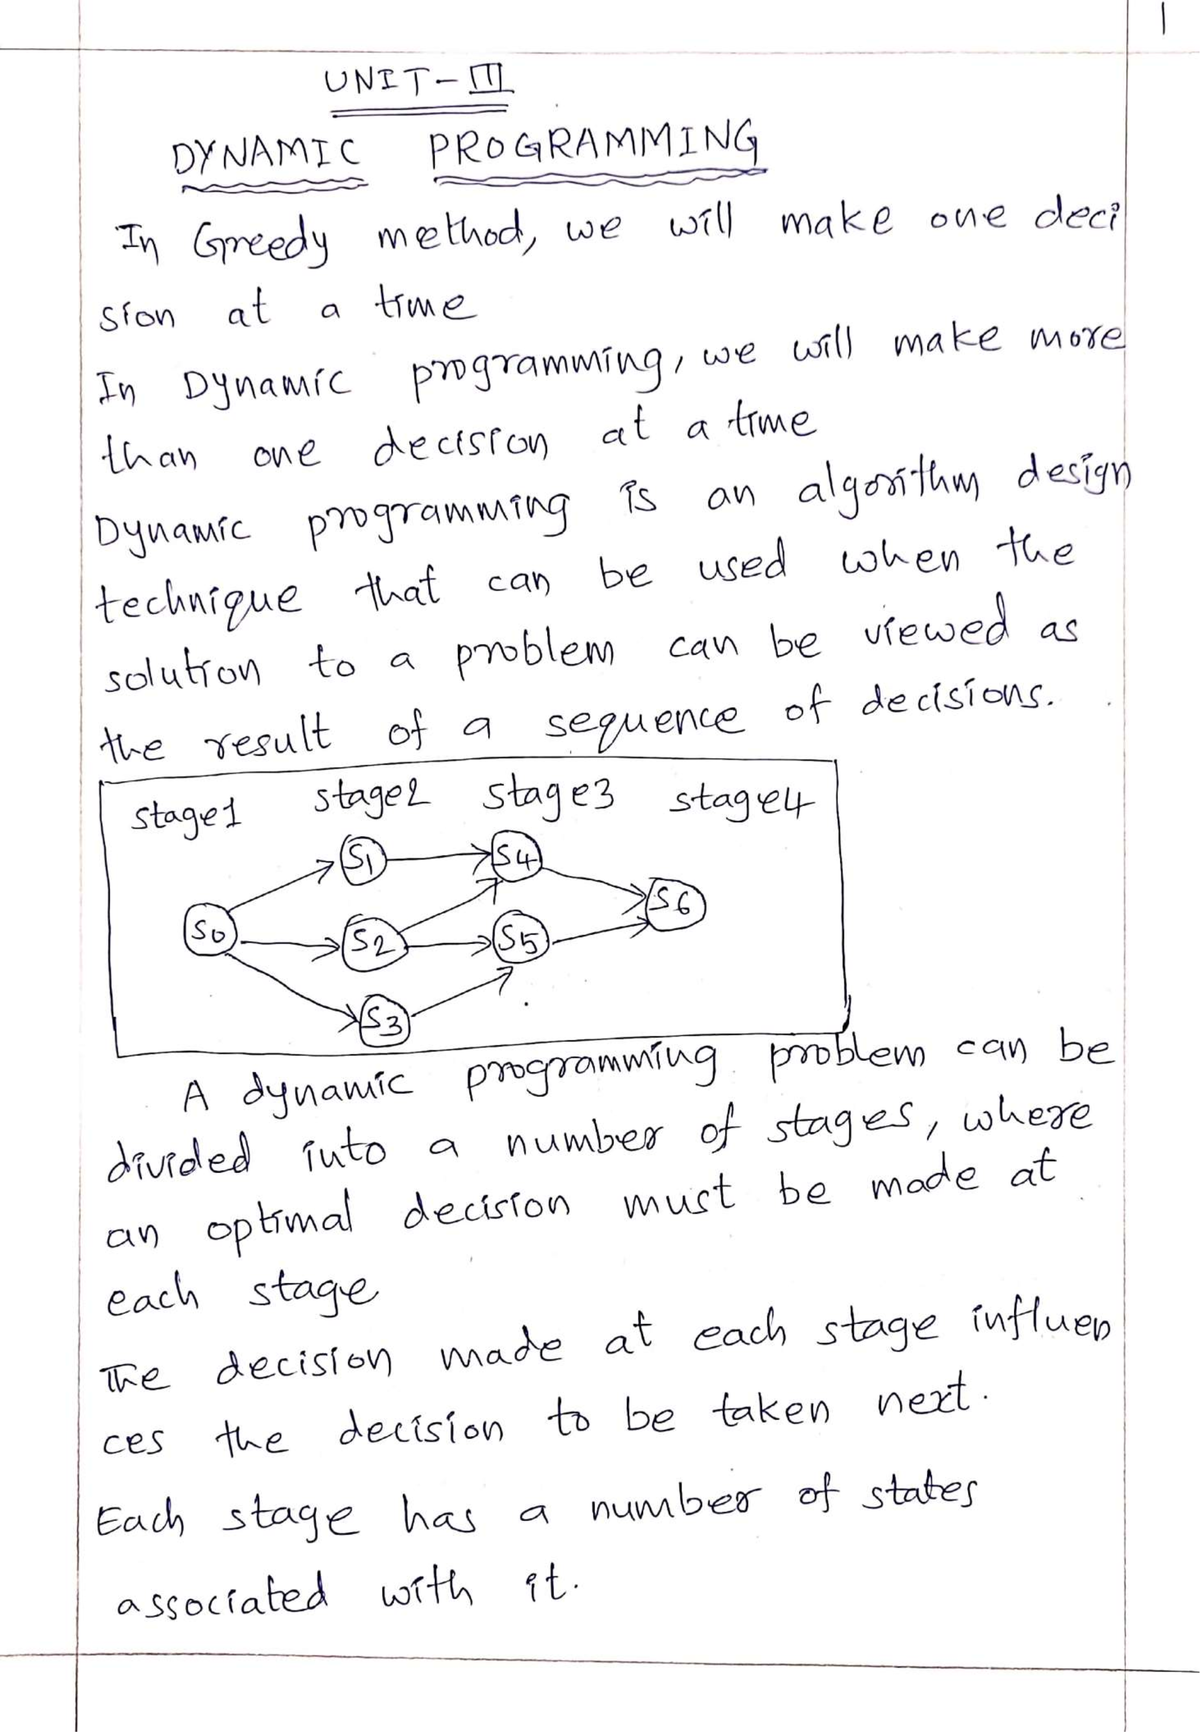 1
UNIT-III
DYNAMIC PROGRAMMING
In Greedy method, we will make one deci
sion at a time
In Dynamic programming, we will make more
than one decision at a time
Dynamic programming is an algorithm design
technique that can be used when the
solution to a problem can be viewed as
the result of a sequence of decisions.
stage1 stage2 stage3 stage4
S1 S4
S6
S0 S2 S5
S3
A dynamic programming problem can be
divided into a number of stages, where
an optimal decision must be made at
each stage
The decision made at each stage influen
ces the decision to be taken next.
Each stage has a number of states
associated with it.